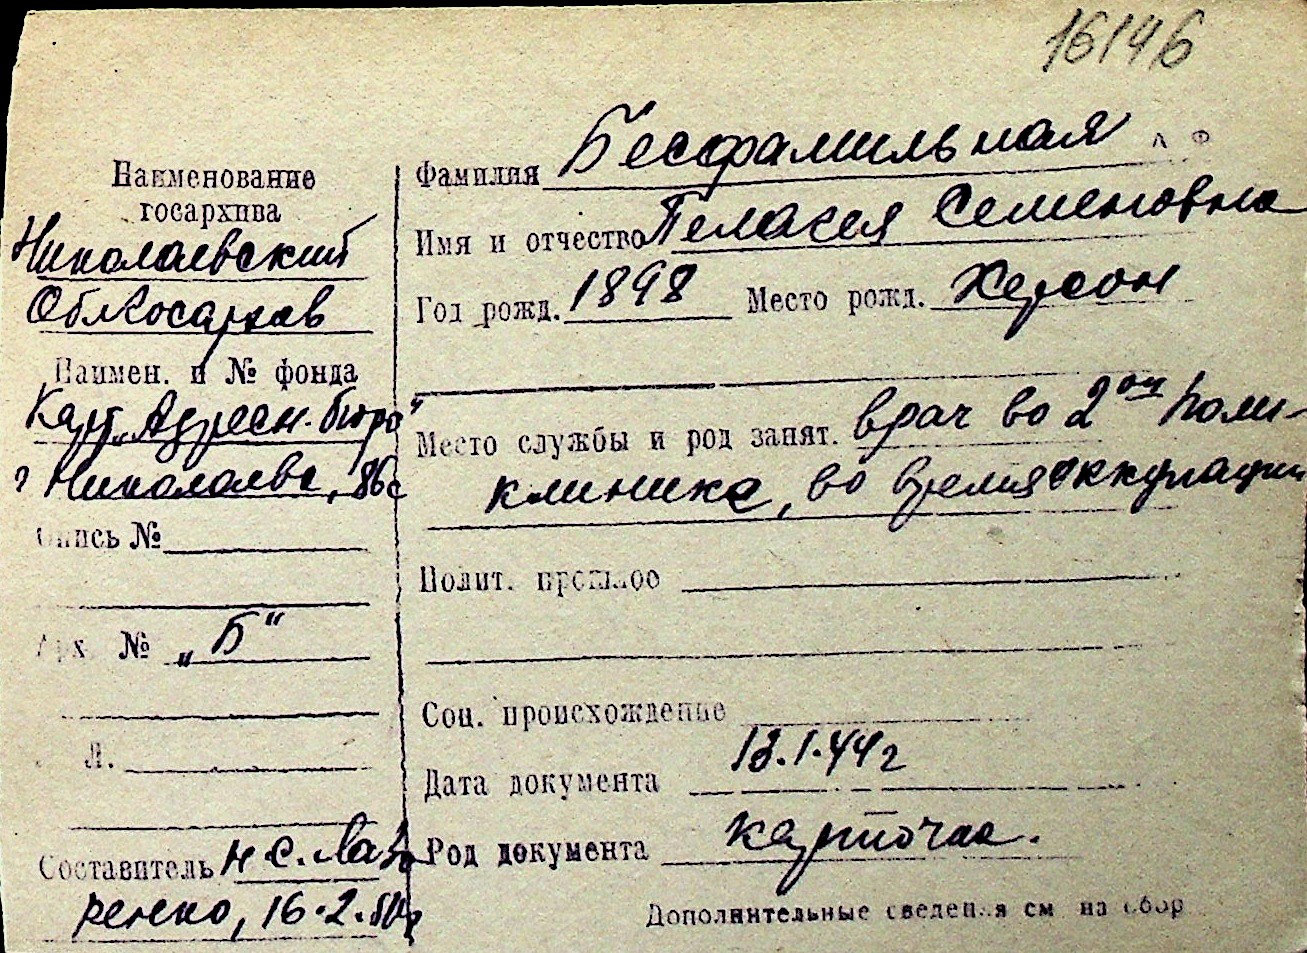 16146
Наименование
госархива
Николаевский
Облгосархив
Наимен. и № фонда
Карт. „Адресн. бюро“
г Николаева,
Опись №
Арх. № „Б“
Л.
Составитель Н. С. Лав
ренко, 16.2.50г
Фамилия Бесфамильная
Имя и отчество Пелагея Семеновна
Год рожд. 1898 Место рожд. Херсон
Место службы и род занят. врач во 2ой поли-
клинике, во время оккупации
Полит. прошлое
Соц. происхождение
Дата документа 13.1.44г
Род документа карточка.
Дополнительные сведения см на обор